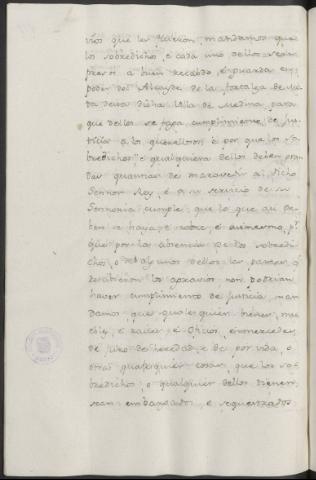 vios que les ficieron, mandamos que
los sobredichos, e cada uno dellos sean
presos a buen recabdo, e guarda en
poder del Alcayde de la fortaleza de
desta dicha Villa de Medina, para
que dellos se faga cumplimiento de jus-
ticia a los querellosos, e por que los so-
bredichos, e qualquiera dellos deben
das quantias de maravedis al dicho
Sennor Rey, e a su servicio de su
Sennoria cumple, que lo que asi de-
ben se haya, e cobre, e asimesmo, pr.
que por la absencia de los sobredi-
chos, o de algunos dellos las partes q.
rescibieron los agravios, non podrian
haver cumplimiento de justicia, man-
damos que qualesquier bienes, mue-
bles, e raices, e Oficios, e mercedes
de juro de heredad, e de por vida, o
otras qualesquier cosas, que los so-
bredichos, o qualquier dellos tienen,
sean embargados, e sequestrados